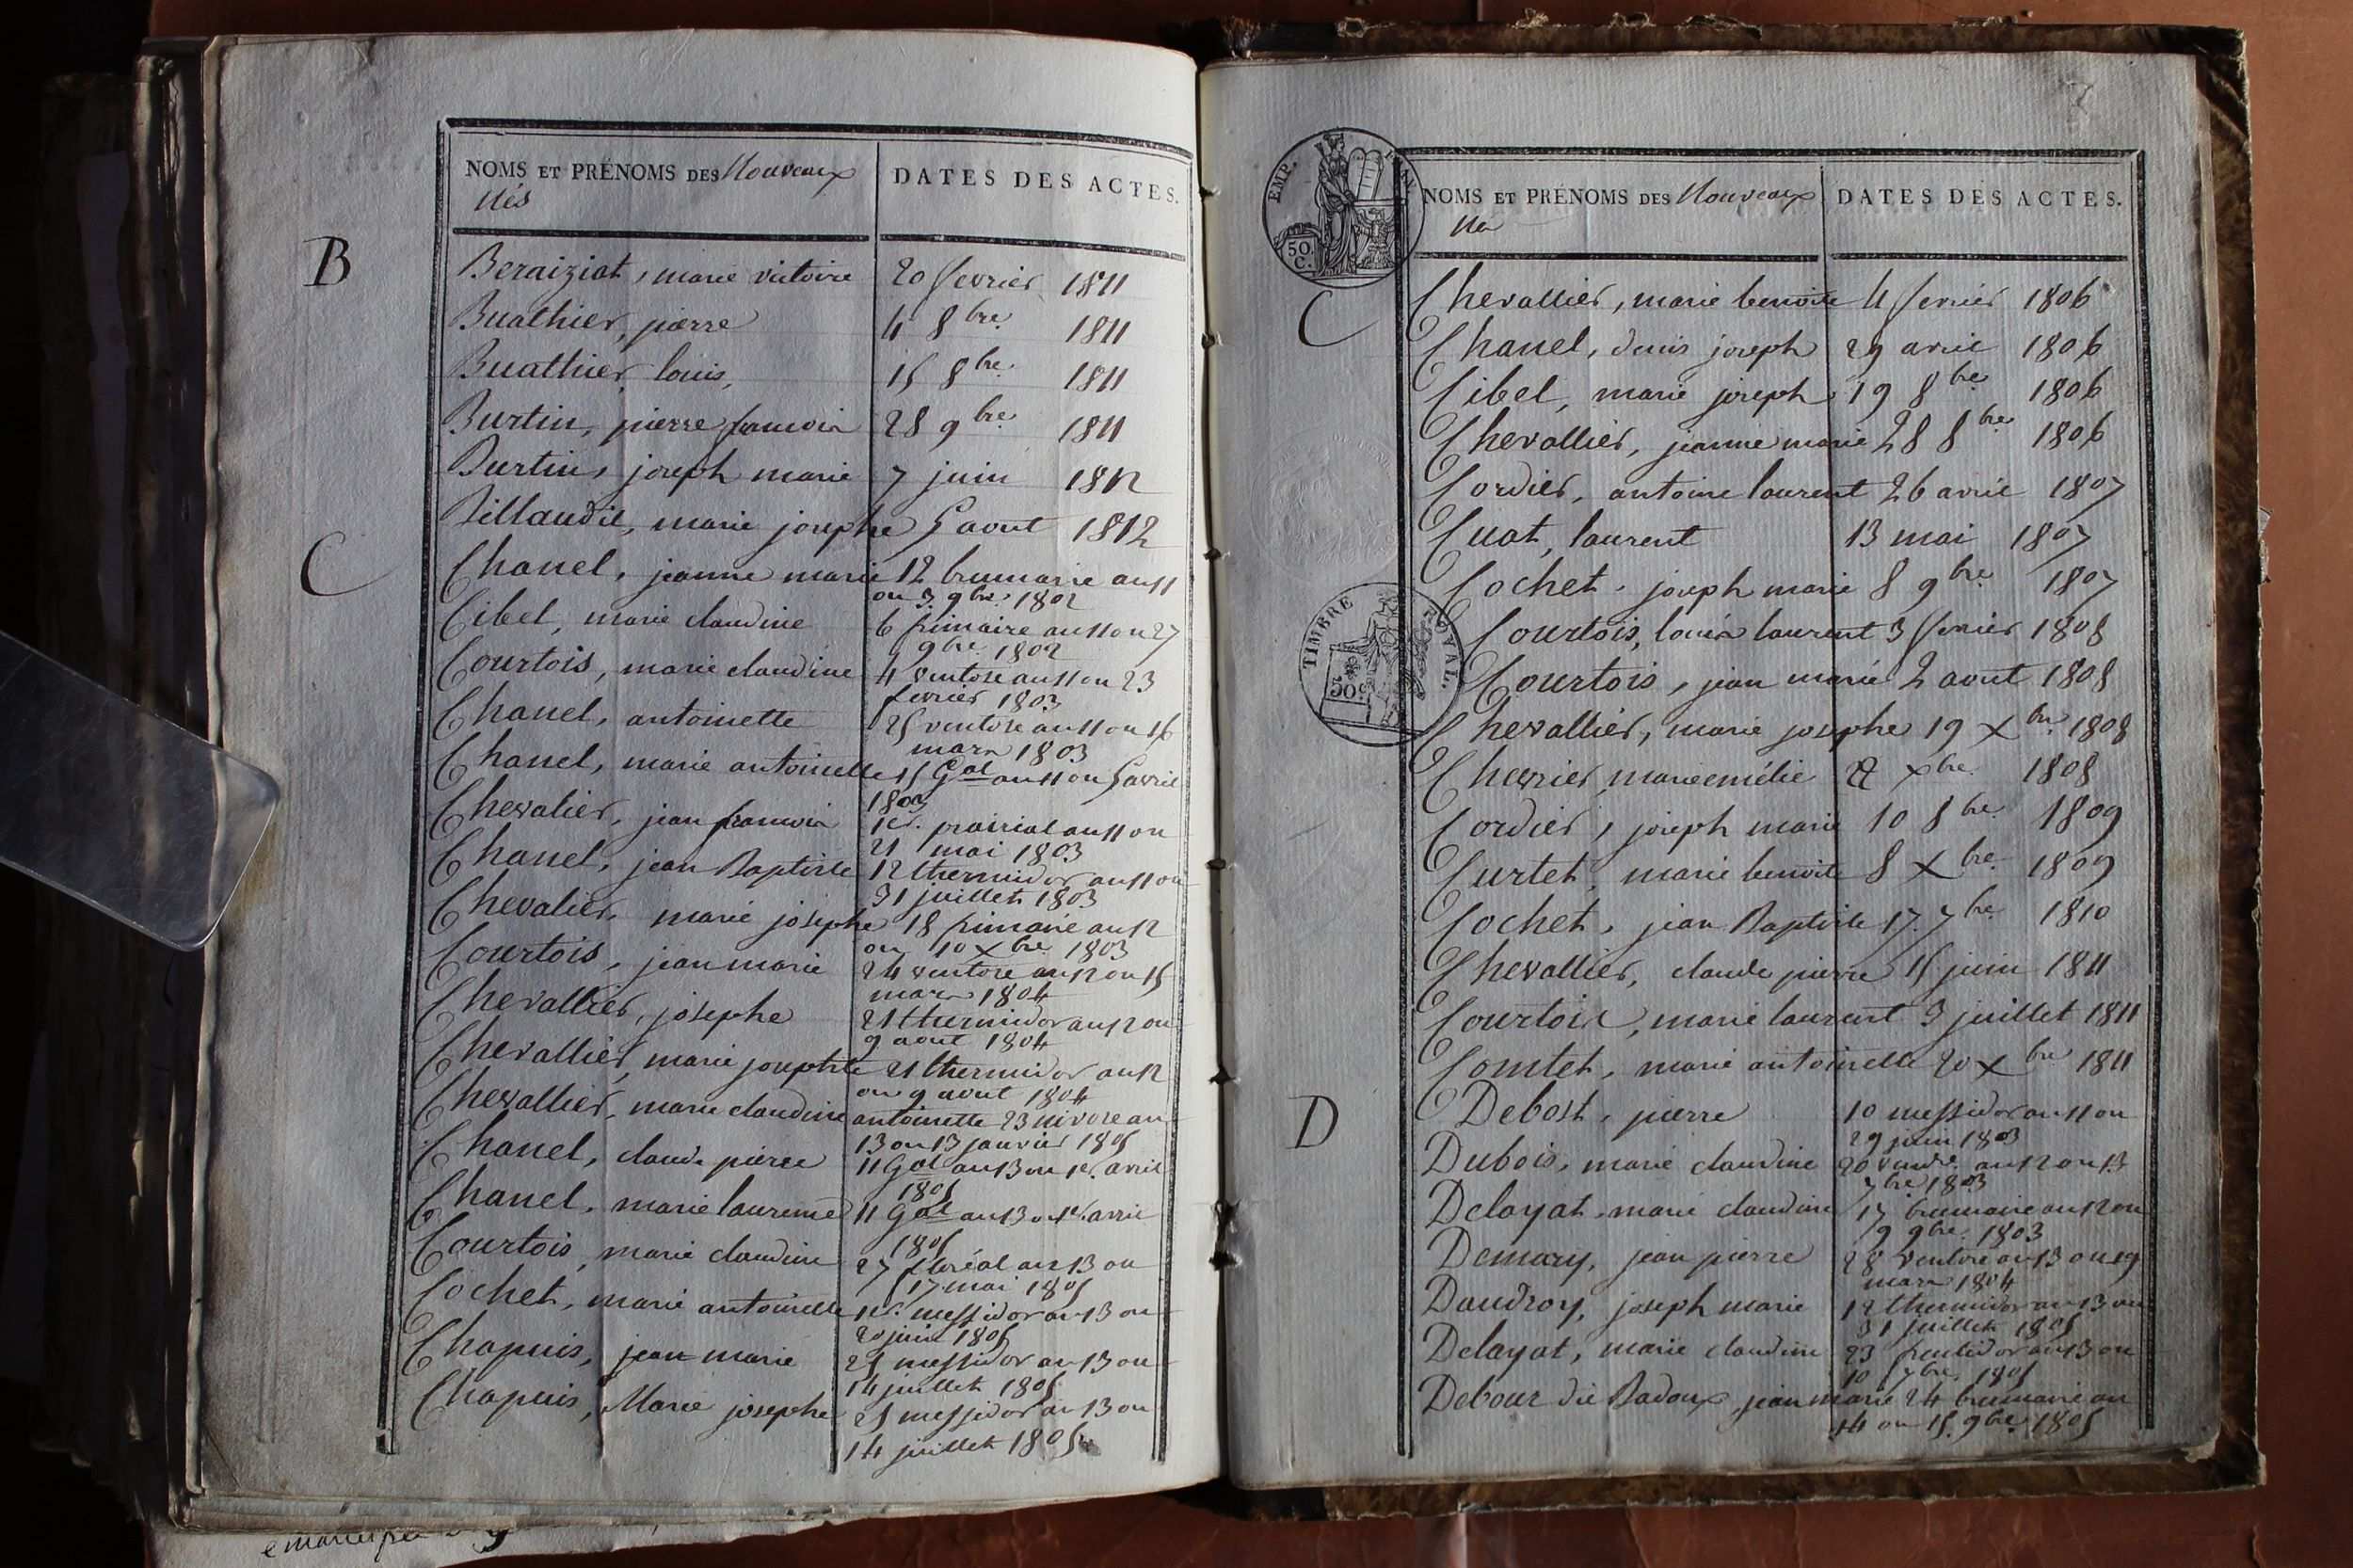 NOMS ET PRÉNOMS DES Nouveaux
Nés
DATES DES ACTES.
B
Beraiziat, marie victoire 20 fevrier 1811
Buathier, pierre 4 8bre. 1811
Buathier, louis, 15 8bre. 1811
Burtin, pierre francois 28 9bre. 1811
Burtin, joseph marie 7 juin 1812
Billaudit, marie josephe 5 aout 1812
C
Chanel, jeanne marie 12 brumaire an 11
ou 3 9bre. 1802
Cibel, marie claudine 6 frimaire an 11 ou 27
9bre. 1802
Courtois, marie claudine 4 ventose an 11 ou 23
fevrier 1803
Chanel, antoinette 25 ventose an 11 ou 16
mars 1803
Chanel, marie antoinette 15 Gal an 11 ou 5 avril
1803
Chevalier, jean francois 1er. prairial an 11 ou
21 mai 1803
Chanel, jean Baptiste 12 thermidor an 11 ou
31 juillet 1803
Chevalier, marie josephe 18 frimaire an 12
ou 10 Xbre. 1803
Courtois, jean marie 24 ventose an 12 ou 15
mars 1804
Chevallier, josephe 21 thermidor an 12 ou
9 aout 1804
Chevallier, marie josephte 21 thermidor an 12
ou 9 aout 1804
Chevallier, marie claudine antoinette 23 nivose an
13 ou 13 janvier 1805
Chanel, claude pierre 11 Gal an 13 ou 1er. avril
1805
Chanel, marie laurence 11 Gal an 13 ou 1er. avril
1805
Courtois, marie claudine 27 floréal an 13 ou
17 mai 1805
Cochet, marie antoinette 1er. messidor an 13 ou
20 juin 1805
Chapuis, jean marie 25 messidor an 13 ou
14 juillet 1805
Chapuis, Marie josephe 25 messidor an 13 ou
14 juillet 1805
7
EMP. FRAN.
50.
C.
NOMS ET PRÉNOMS DES Nouveaux
Nés
DATES DES ACTES.
C
Chevallier, marie benoite 4 fevrier 1806
Chanel, denis joseph 29 avril 1806
Cibel, marie joseph 19 8bre 1806
Chevallier, jeanne marie 28 8bre 1806
Cordier, antoine laurent 26 avril 1807
Cuat, laurent 13 mai 1807
Cochet, joseph marie 8 9bre. 1807
TIMBRE ROYAL.
50c
Courtois, louis laurent 3 fevrier 1808
Courtois, jean marie 2 aout 1808
Chevallier, marie josephe 19 Xbre. 1808
Chevrier, marie emélie Xbre. 1808
Cordier, joseph marie 10 8bre. 1809
Curtet, marie benoite 8 Xbre. 1809
Cochet, jean Baptiste 17. 7bre. 1810
Chevallier, claude pierre 15 juin 1811
Courtois, marie laurent 3 juillet 1811
Comtet, marie antoinette 20 Xbre 1811
D
Debost, pierre 10 messidor an 11 ou
29 juin 1803
Dubois, marie claudine 20 vendre. an 12 ou 13
7bre 1803
Delayat, marie claudine 17 brumaire an 12 ou
9 9bre. 1803
Demary, jean pierre 28 ventose an 13 ou 19
mars 1804
Daudroy, joseph marie 12 thermidor an 13 ou
31 juillet 1805
Delayat, marie claudine 23 fructidor an 13 ou
10 7bre. 1805
Debour dit Badoux, jean marie 24 brumaire an
14 ou 15. 9bre. 1805